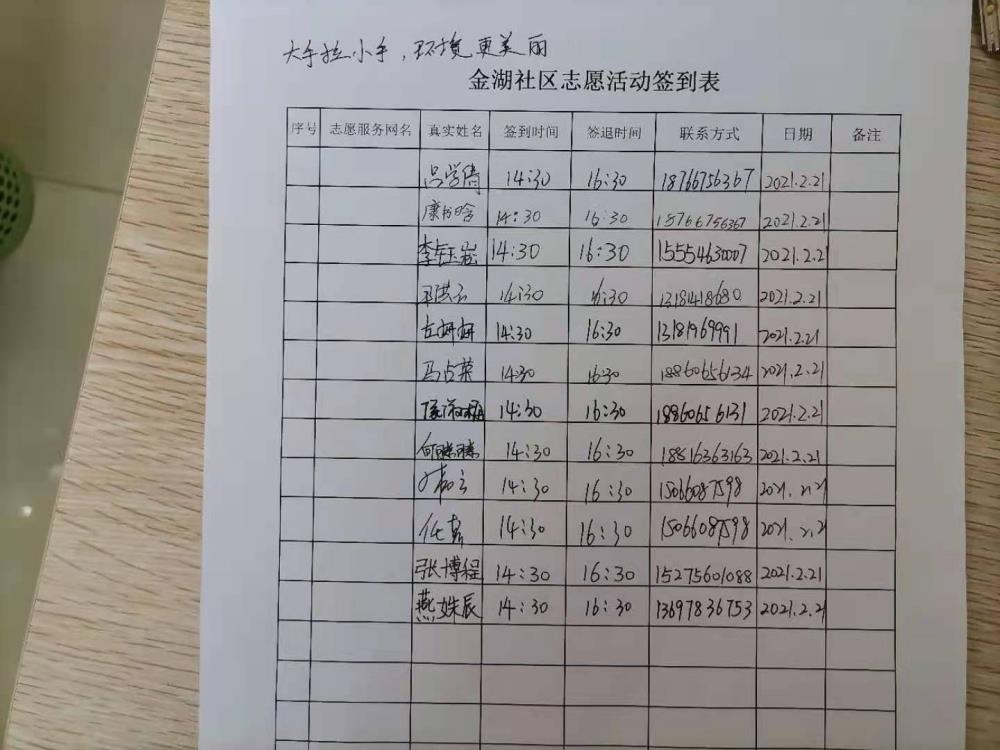 大手拉小手，环境更美丽
金湖社区志愿活动签到表
序号 志愿服务网名 真实姓名 签到时间 签退时间 联系方式 日期 备注
吕学倩 14:30 16:30 18766756367 2021.2.21
康书晗 14:30 16:30 18766756367 2021.2.21
李钰崧 14:30 16:30 15554630007 2021.2.21
14:30 16:30 13181418680 2021.2.21
左妍妍 14:30 16:30 13181969991 2021.2.21
马占荣 14:30 16:30 18860656134 2021.2.21
14:30 16:30 18860656131 2021.2.21
14:30 16:30 18816363163 2021.2.21
14:30 16:30 15066087598 2021.2.21
任嘉 14:30 16:30 15066087598 2021.2.21
张博程 14:30 16:30 15275601088 2021.2.21
燕姝辰 14:30 16:30 13697836753 2021.2.21